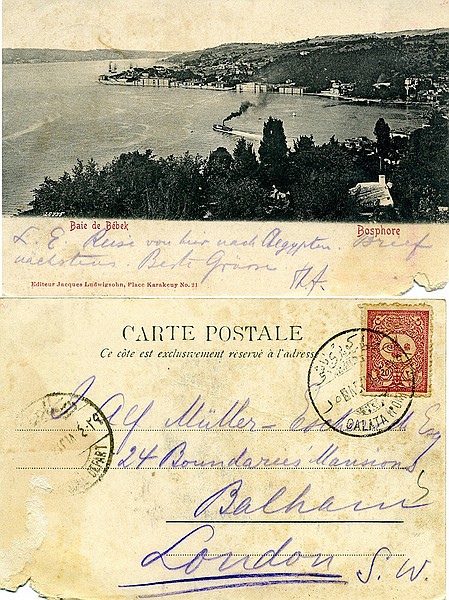 Baie de Bébek
Bosphore
L. E. Reise von hier nach Aegypten. Brief
nächstens. Beste Grüsse
Editeur Jacques Ludwigsohn, Place Karakeuy No. 21
CARTE POSTALE
Ce côté est exclusivement réservé à l'adresse
GALATA
DEPART
Alf Müller- Esq
24 Boundaries Mansions
Balham
London S. W.